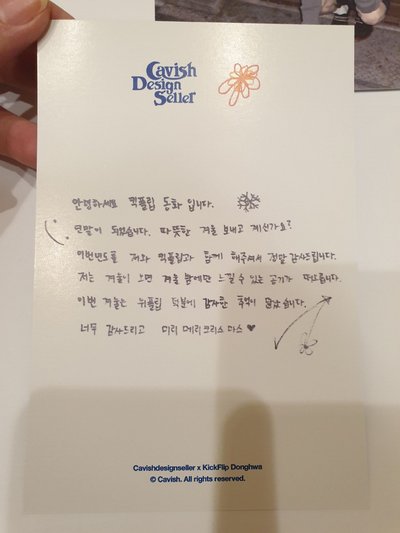 Cavish
Design
Seller
안녕하세요 킥플립 동화 입니다.
연말이 되었습니다. 따뜻한 겨울 보내고 계신가요?
이번년도를 저와 킥플립과 함께 해주셔서 정말 감사드립니다.
저는 겨울이 오면 겨울 밤에만 느낄 수 있는 공기가 떠오릅니다.
이번 겨울은 위플립 덕분에 감사한 추억이 많았습니다.
너무 감사드리고 미리 메리크리스마스 ♥
Cavishdesignseller x KickFlip Donghwa
© Cavish. All rights reserved.